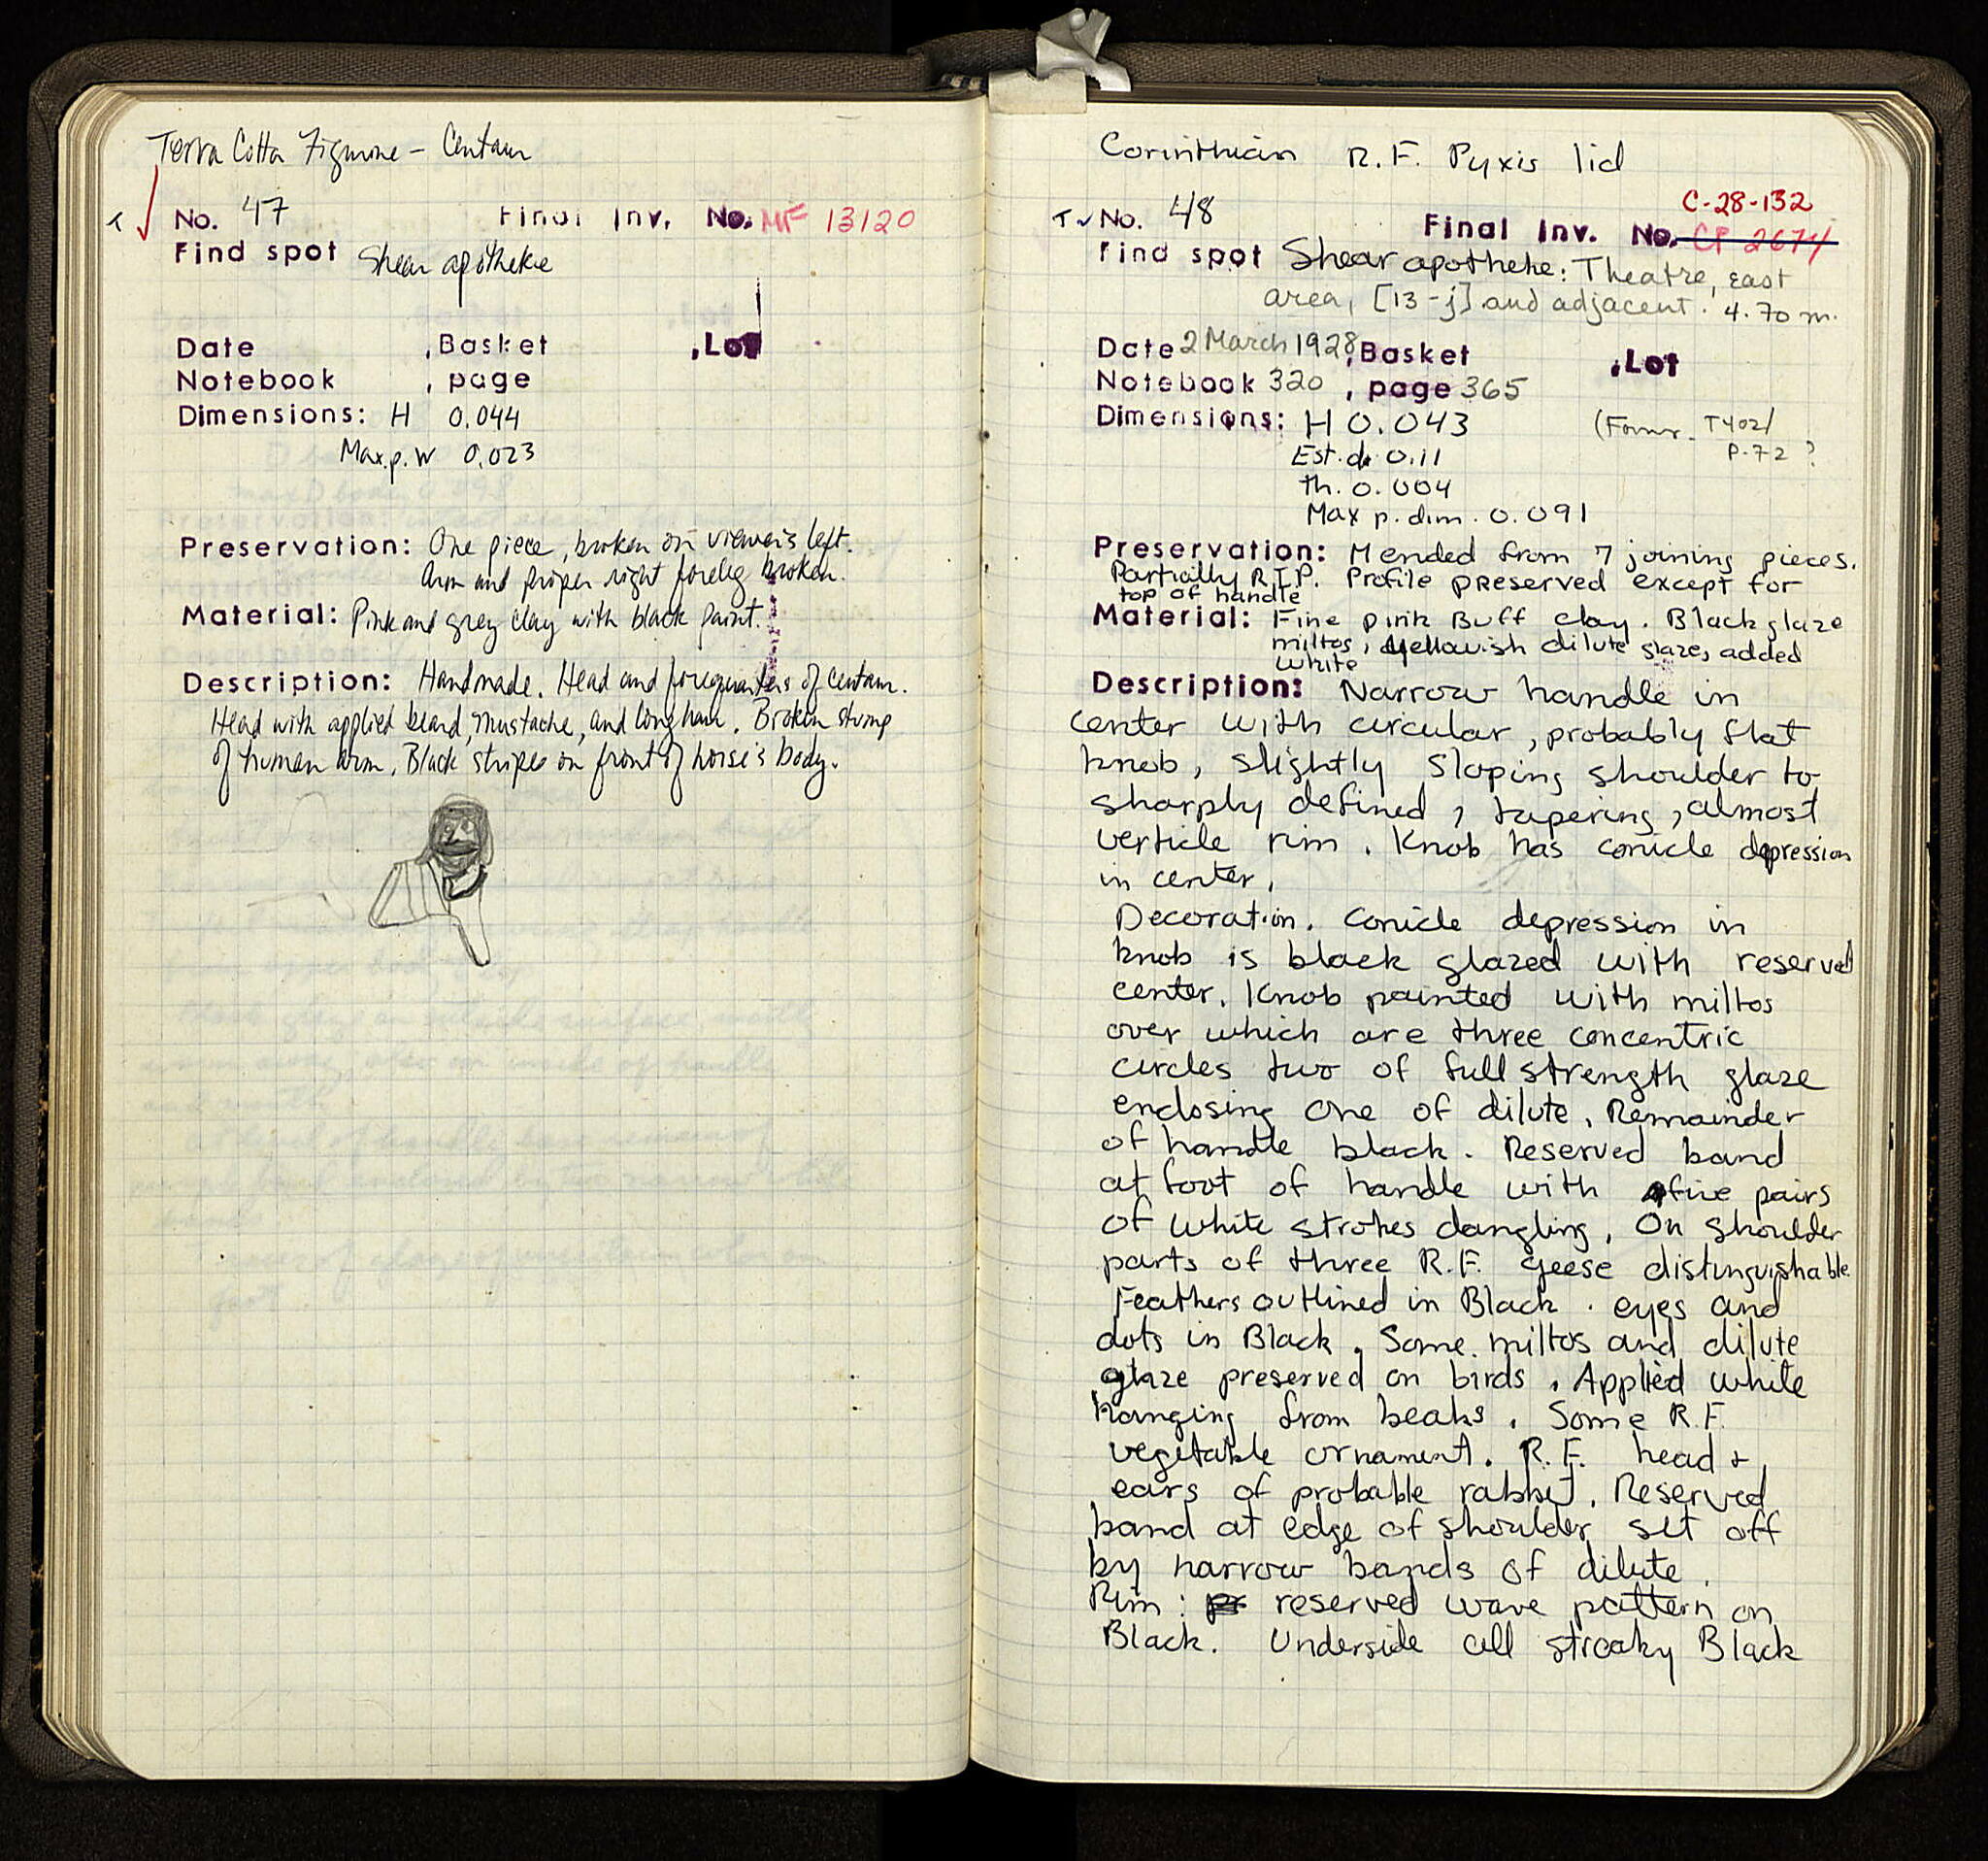 Terra Cotta Figurine - Centaur
T No. 47 Final Inv. No. MF 13120
Find spot Shear apotheke
Date , Basket , Lot
Notebook , page
Dimensions: H 0.044
Max.p.W 0.023
Preservation: One piece, broken on viewer's left.
Arm and proper right foreleg broken.
Material: Pink and grey clay with black paint.
Description: Handmade. Head and forequarters of centaur.
Head with applied beard, mustache, and long hair. Broken stump
of human arm. Black stripes on front of horse's body.
Corinthian R.F. Pyxis lid
C-28-132
T No. 48 Final Inv. No. CP 2674
Find spot Shear apotheke: Theatre, east
area, [13-j] and adjacent. 4.70 m.
Date 2 March 1928, Basket , Lot
Notebook 320 , page 365
Dimensions: H 0.043 (Former T402/
Est. d. 0.11 P-72 ?
Th. 0.004
Max p. dim. 0.091
Preservation: Mended from 7 joining pieces.
Partially R.I.P. Profile preserved except for
top of handle
Material: Fine pink Buff clay. Black glaze
miltos, yellowish dilute glaze, added
white
Description: Narrow handle in
center with circular, probably flat
knob, slightly sloping shoulder to
sharply defined, tapering, almost
verticle rim. Knob has conicle depression
in center.
Decoration. Conicle depression in
knob is black glazed with reserved
center. Knob painted with miltos
over which are three concentric
circles two of full strength glaze
enclosing one of dilute. Remainder
of handle black. Reserved band
at foot of handle with five pairs
of white strokes dangling. On shoulder
parts of three R.F. geese distinguishable
Feathers outlined in Black. eyes and
dots in Black. Some miltos and dilute
glaze preserved on birds. Applied white
hanging from beaks. Some R.F.
vegetable ornament. R.F. head +
ears of probable rabbit. Reserved
band at edge of shoulder set off
by narrow bands of dilute.
Rim: reserved wave pattern on
Black. Underside all streaky Black